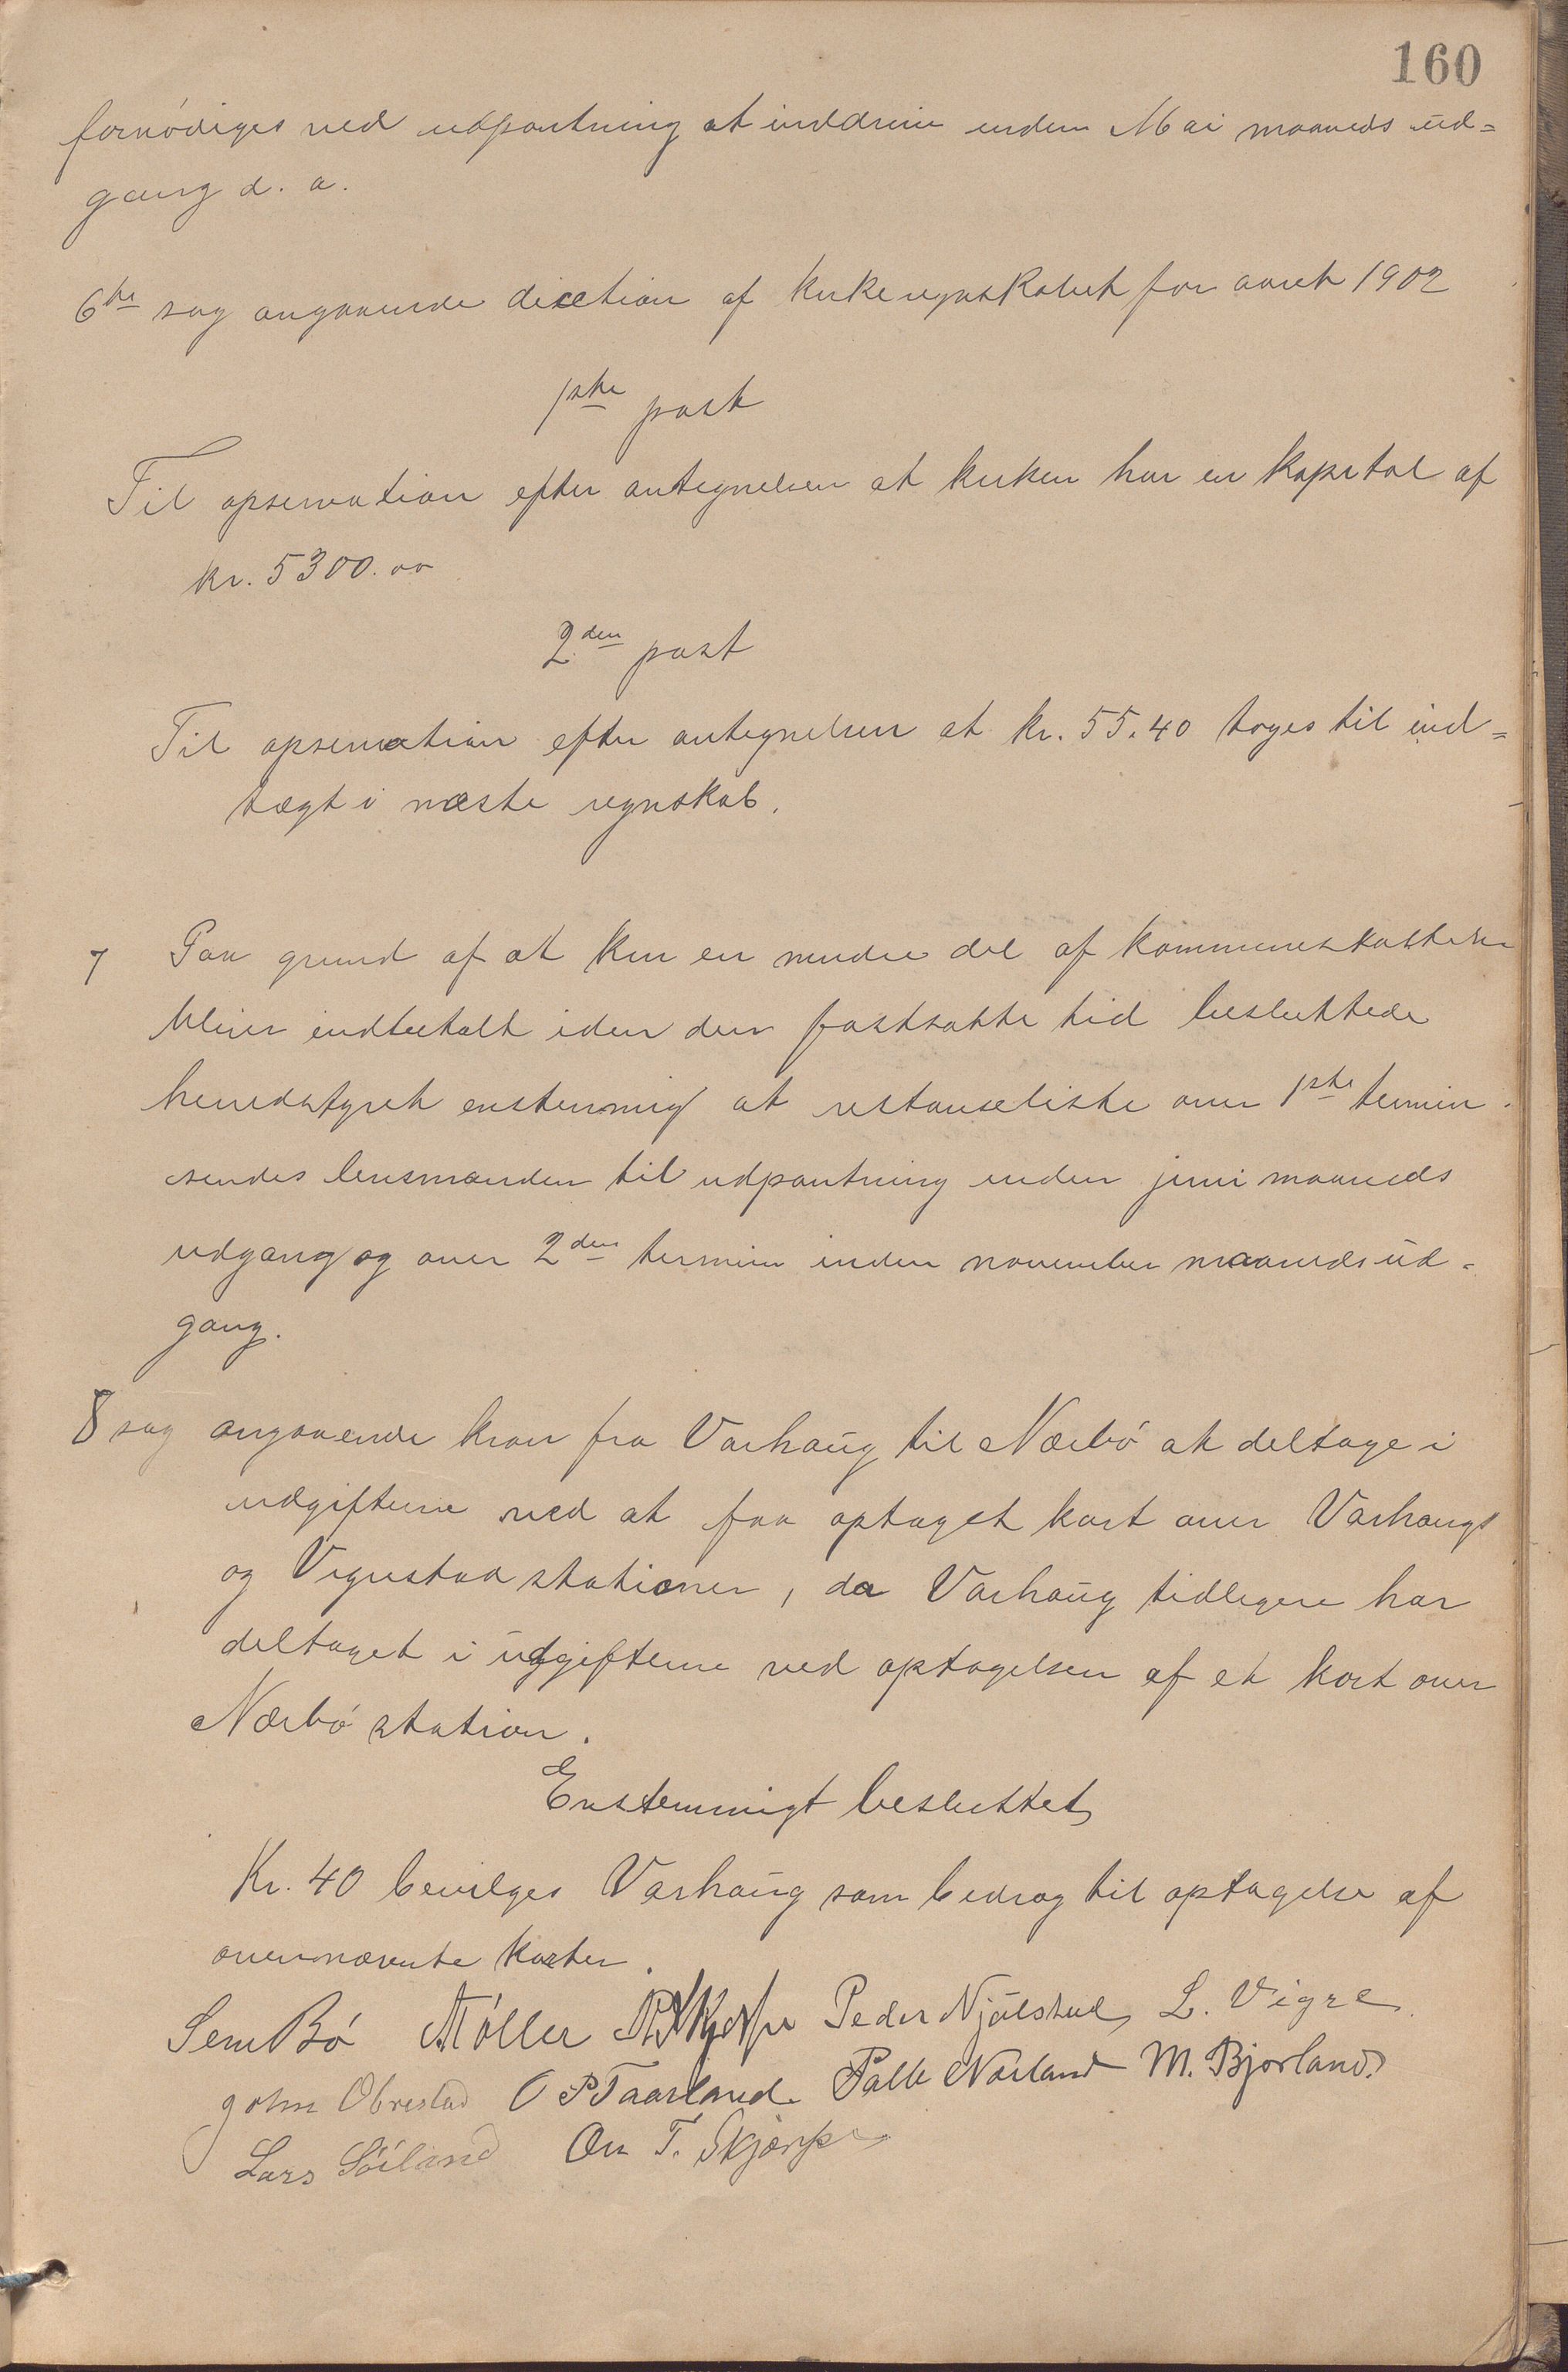 160
fornödiges ved udpantning at inddrive inden Mai maaneds ud=
gang d. a.
6te sag angaaende dicetion af kirkeregnskabet for aaret 1902
1ste post
Til opservation efter antegnelsen at kirken har en kapital af
kr. 5300.00
2den post
Til opservation efter antegnelsen at kr. 55.40 toges til ind=
tægt i næste regnskab.
7 Paa grund af at kun en mindre del af kommuneskatten
bliver indbetalt iden den fastsatte tid besluttede
herredstyret enstemmig at restanseliste over 1ste termin
sendes lensmanden til udpantning inden juni maaneds
udgang og over 2den termin inden november maaneds ud-
gang.
8 sag angaaende krav fra Varhaug til Nærbö at deltage i
udgifterne ved at faa optaget kart over Varhaugs
og Vigrestad stationer, da Varhaug tidligere har
deltaget i udgifterne ved optagelsen af et kort over
Nærbö station.
Enstemmigt besluttet
Kr. 40 bevilges Varhaug som bedrag til optagelse af
overnævnte karter.
Sem Bö Möller Peder Njölstad L. Vigre
John Obrestad O P Taarland Palle Narland M. Bjorland
Lars Söiland T. Skjærpe